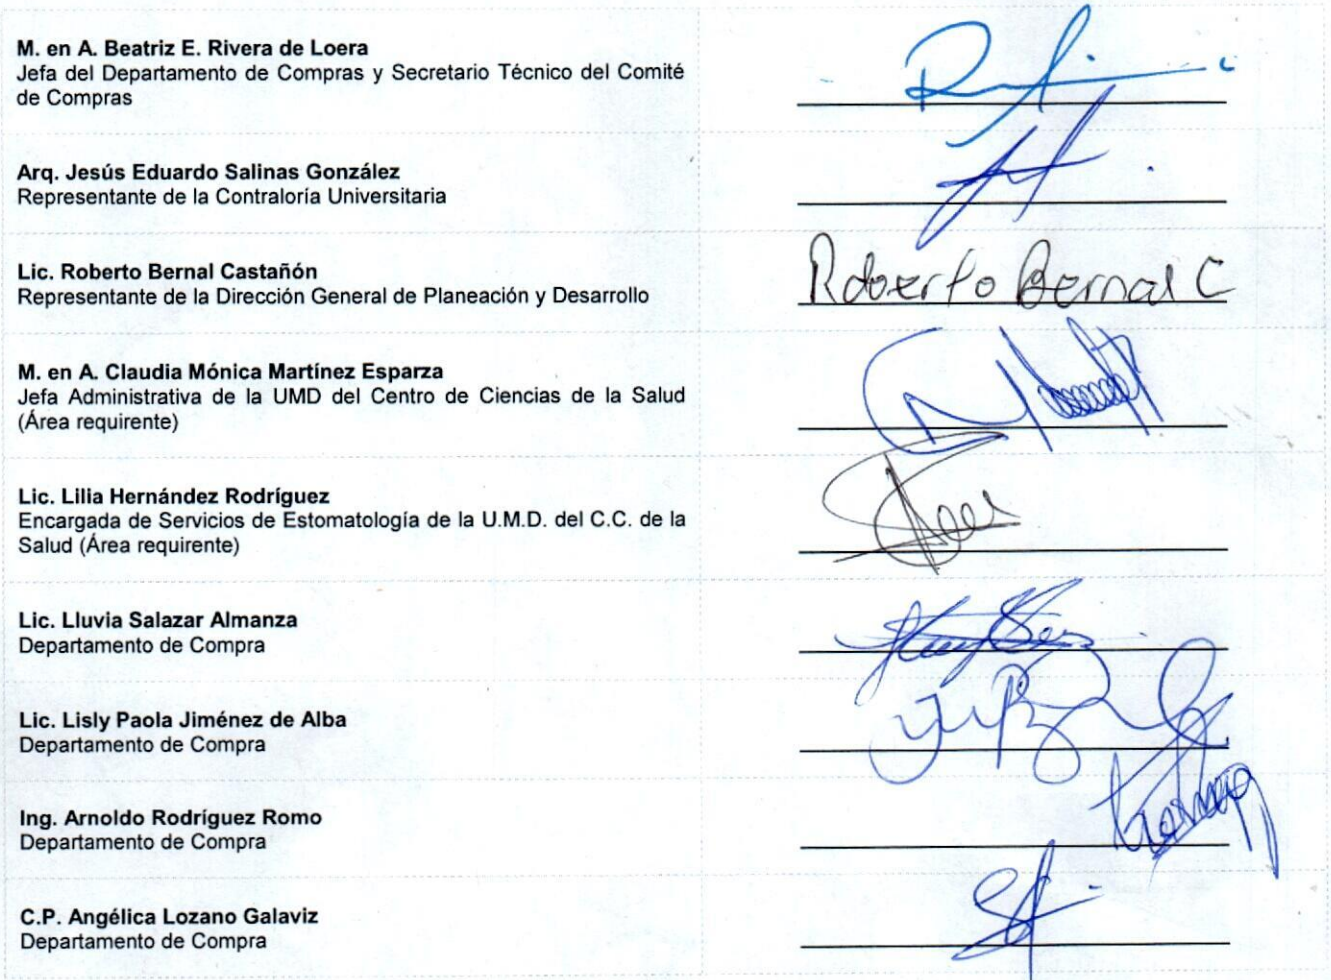 M. en A. Beatriz E. Rivera de Loera
Jefa del Departamento de Compras y Secretario Técnico del Comité
de Compras
Arq. Jesús Eduardo Salinas González
Representante de la Contraloría Universitaria
Lic. Roberto Bernal Castañón
Representante de la Dirección General de Planeación y Desarrollo
Roberto Bernal C
M. en A. Claudia Mónica Martínez Esparza
Jefa Administrativa de la UMD del Centro de Ciencias de la Salud
(Área requirente)
Lic. Lilia Hernández Rodríguez
Encargada de Servicios de Estomatología de la U.M.D. del C.C. de la
Salud (Área requirente)
Lic. Lluvia Salazar Almanza
Departamento de Compra
Lic. Lisly Paola Jiménez de Alba
Departamento de Compra
Ing. Arnoldo Rodríguez Romo
Departamento de Compra
C.P. Angélica Lozano Galaviz
Departamento de Compra